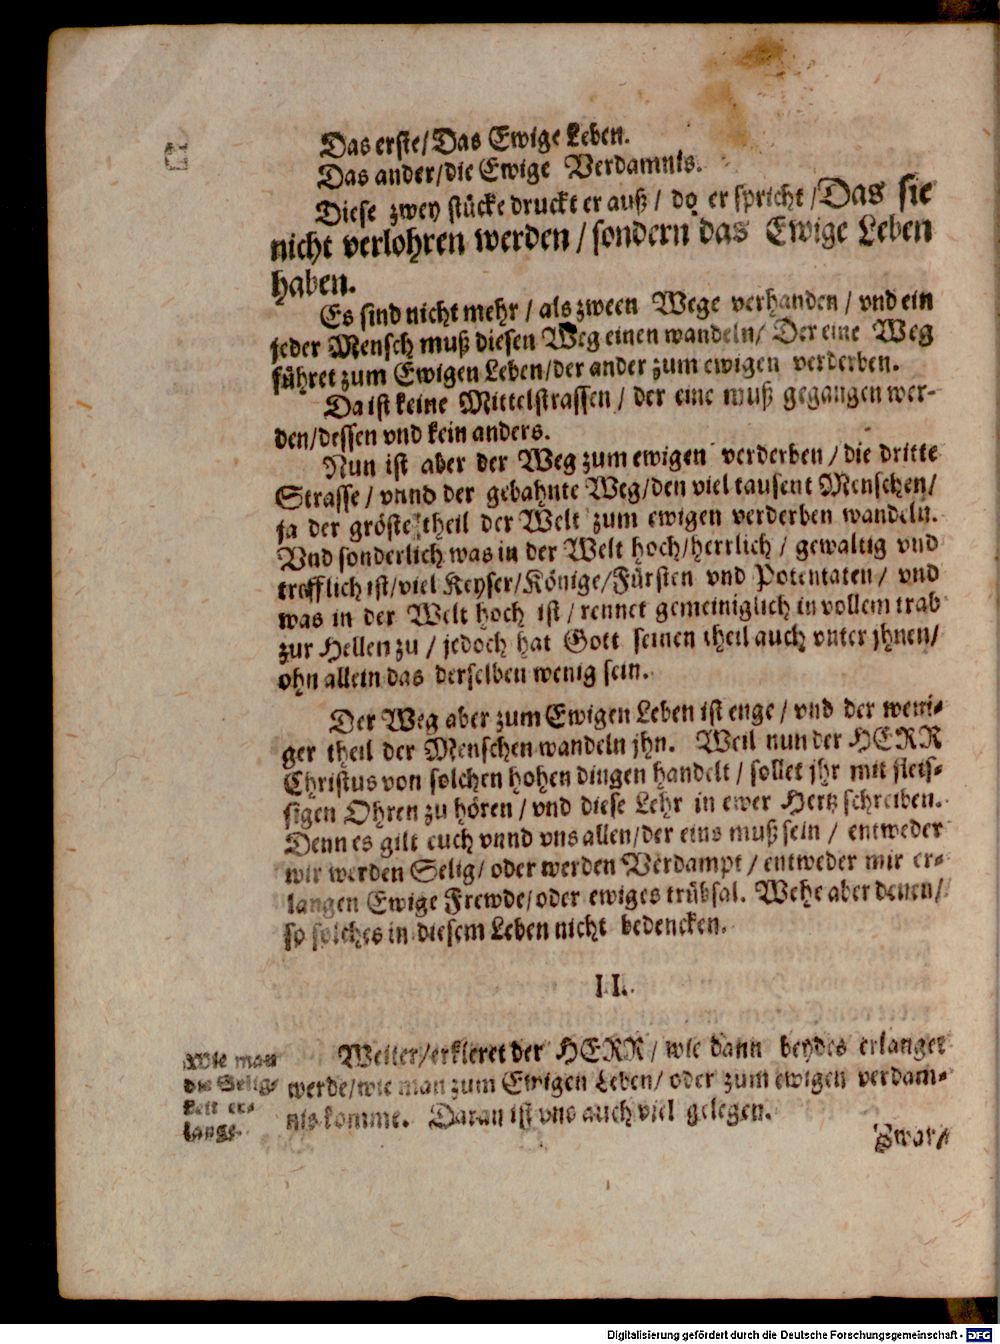 Das erste/Das Ewige Leben.
Das ander/die Ewige Verdamnis.
Diese zwey stücke druckt er auß / do er spricht /Das sie
nicht verlohren werden / sondern das Ewige Leben
haben.
Es sind nicht mehr / als zween Wege verhanden / vnd ein
jeder Mensch muß diesen Weg einen wandeln/ Der eine Weg
führet zum Ewigen Leben/der ander zum ewigen verderben.
Da ist keine Mittelstrassen / der eine muß gegangen wer-
den/dessen vnd kein anders.
Nun ist aber der Weg zum ewigen verderben / die dritte
Strasse / vnnd der gebahnte Weg/den viel tausent Menschen/
ja der gröste theil der Welt zum ewigen verderben wandeln.
Vnd sonderlich was in der Welt hoch/herrlich / gewaltig vnd
trefflich ist/viel Keyser/Könige/Fürsten vnd Potentaten / vnd
was in der Welt hoch ist / rennet gemeiniglich in vollem trab
zur Hellen zu / jedoch hat Gott seinen theil auch vnter jhnen/
ohn allein das derselben wenig sein.
Der Weg aber zum Ewigen Leben ist enge / vnd der weni-
ger theil der Menschen wandeln jhn. Weil nun der HERR
Christus von solchen hohen dingen handelt / sollet jhr mit fleis-
sigen Ohren zu hören / vnd diese Lehr in ewer Hertz schreiben.
Denn es gilt euch vnnd vns allen/der eins muß sein / entweder
wir werden Selig/ oder werden Verdampt / entweder wir er-
langen Ewige Frewde/oder ewiges trübsal. Wehe aber denen/
so solches in diesem Leben nicht bedencken.
II.
Wie man
die Selig-
keit er-
lange.
Weiter/erkleret der HERR / wie dann beydes erlanget
werde/wie man zum Ewigen Leben/ oder zum ewigen verdam-
nis komme. Daran ist vns auch viel gelegen.
Zwar/
Digitalisierung gefördert durch die Deutsche Forschungsgemeinschaft - DFG